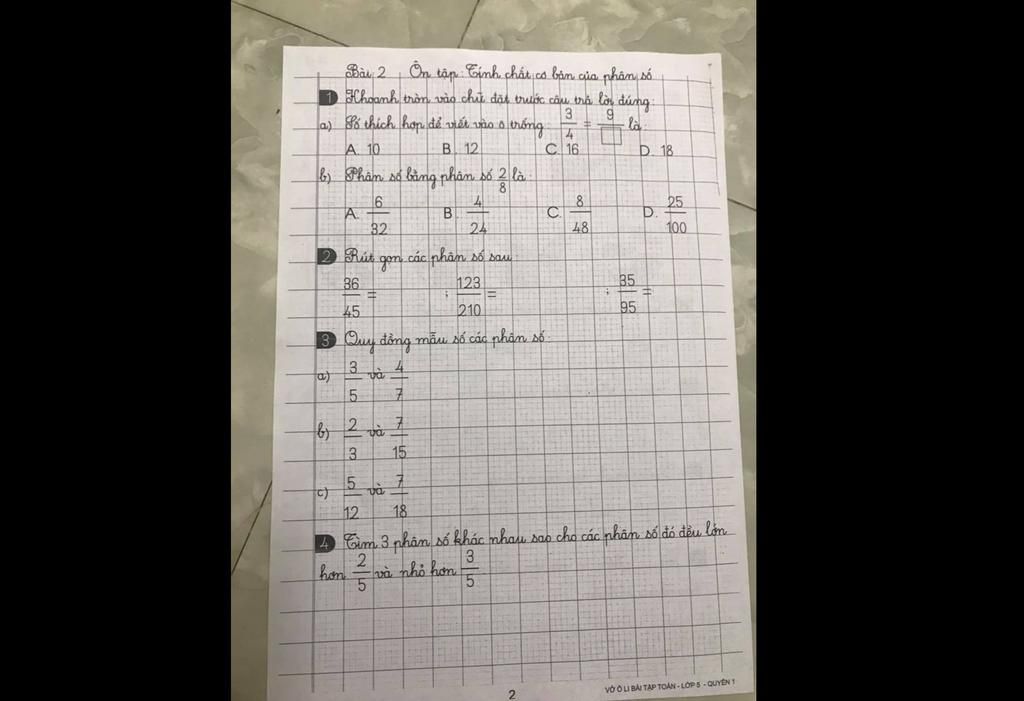 Bài 2 Ôn tập: Tính chất cơ bản của phân số
1 Khoanh tròn vào chữ đặt trước câu trả lời đúng:
a) Số thích hợp để viết vào ô trống 3/4 = 9/□ là:
A. 10 B. 12 C. 16 D. 18
b) Phân số bằng phân số 2/8 là:
A. 6/32 B. 4/24 C. 8/48 D. 25/100
2 Rút gọn các phân số sau:
36/45 = ; 123/210 = ; 35/95 =
3 Quy đồng mẫu số các phân số:
a) 3/5 và 4/7
b) 2/3 và 7/15
c) 5/12 và 7/18
4 Tìm 3 phân số khác nhau sao cho các phân số đó đều lớn
hơn 2/5 và nhỏ hơn 3/5
2
VỞ Ô LI BÀI TẬP TOÁN - LỚP 5 - QUYỂN 1